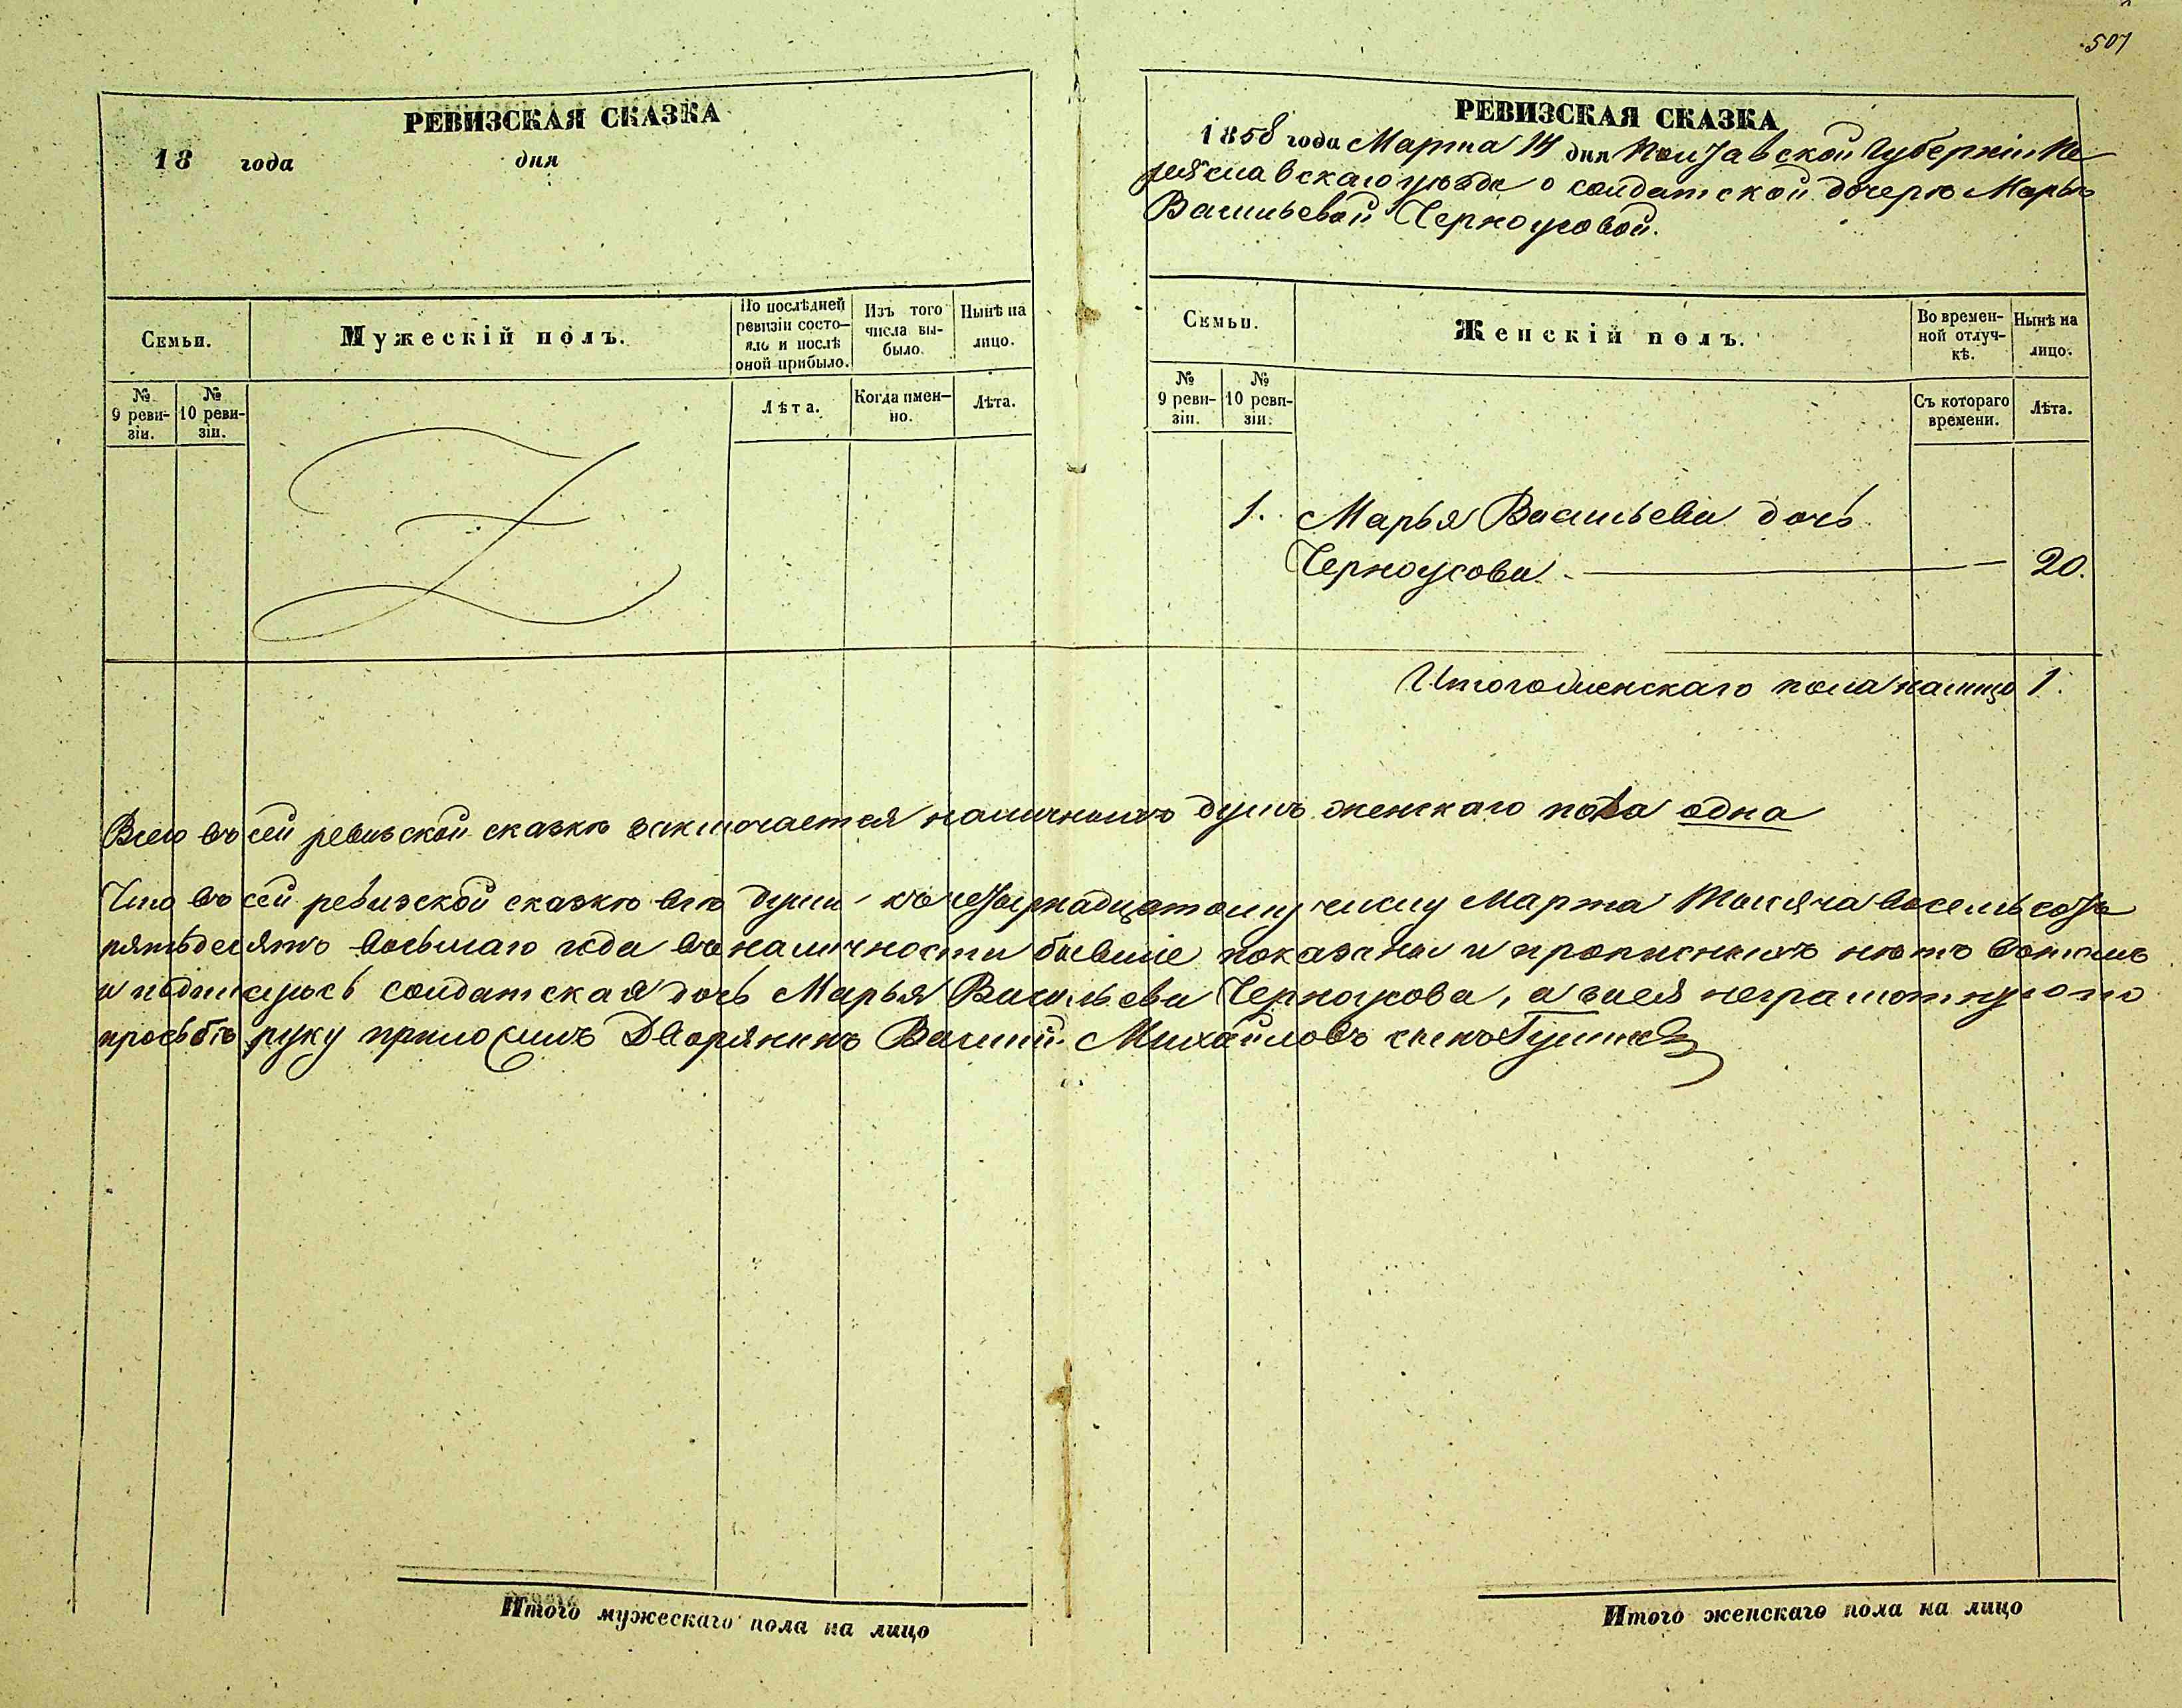 507
РЕВИЗСКАЯ СКАЗКА
18 года дня
Семьи.
Мужескій полъ.
По послѣдней ревизіи состояло и послѣ оной прибыло.
Изъ того числа выбыло.
Нынѣ на лицо.
№ 9 ревизіи.
№ 10 ревизіи.
Лѣта.
Когда именно.
Лѣта.
РЕВИЗСКАЯ СКАЗКА
1858 года Марта 14 дня Полтавской Губерніи Пе
реяславскаго уѣзда о солдатской дочерѣ Марьѣ
Васильевой Черноусовой.
Семьи.
Женскій полъ.
Во временной отлучкѣ.
Нынѣ на лицо.
№ 9 ревизіи.
№ 10 ревизіи.
Съ котораго времени.
Лѣта.
1. Марья Васильева дочь
Черноусова 20.
Итого женскаго пола налицо 1.
Всего въ сей ревизской сказкѣ заключается наличныхъ душъ женскаго пола одна
Что въ сей ревизской сказкѣ всѣ души къ четырнадцатому числу Марта тысяча восемьсотъ
пятьдесятъ восьмаго года въ наличности бывшіе показаны и прописныхъ нѣтъ вътомъ
и подпишусь солдатская дочь Марья Васильева Черноусова, а заея неграмотную по
просьбѣ руку приложилъ Дворянинъ Василій Михайловъ сынъ
Итого мужескаго пола на лицо
Итого женскаго пола на лицо